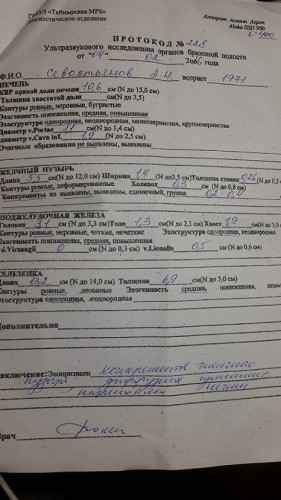 «Таймырская МРБ»
Диагностическое отделение
Аппарат Алоka SSD 900
ПРОТОКОЛ № 228
Ультразвукового исследования органов брюшной полости
от «04» 02 2016 года
Ф.И.О. Севастьянов А.Н. возраст 1971
ПЕЧЕНЬ
КВР правой доли печени 10,6 см (N до 15,0 см)
Толщина хвостатой доли см(N до 3,5)
Контуры ровные, неровные, бугристые
Эхогенность понижена, средняя, повышенная
Эхоструктура однородная, неоднородная, мелкозернистая, крупнозернистая
диаметр v.Portae 11 см(N до 1,4 см)
диаметр v.Cava inf. (N до 2,5 см)
Очаговые образования не выявлены, выявлены
ЖЕЛЧНЫЙ ПУЗЫРЬ
Длина 5,5 см(N до 12,0 см) Ширина 1,4 (N до3,5) Толщина стенок 0,26 (N до 0,3
Контуры ровные, деформированные Холедох 0,3 см (N до 0,8 см)
Конкременты не выявлены, выявлены, единичный, группа 0,2-0,4
ПОДЖЕЛУДОЧНАЯ ЖЕЛЕЗА
Головка 3,1 см (N до 3,3 см)Тело 1,3 см (N до 2,1 см) Хвост 1,9 (N до
Контуры ровные, неровные, четкие, нечеткие Эхоструктура однородная, неоднородная
Эхогенность понижена, средняя, повышенная
d.Virsungii 0 см (N до 0,3 см) v.Lienalis 0,5 см (N до 0,6 см)
СЕЛЕЗЕНКА
Длина 13,2 см (N до 14,0 см) Толщина 4,9 см(N до 5,0 см)
Контуры ровные, неровные Эхогенность средняя, пониженная,
Эхоструктура однородная, неоднородная
Дополнительно
Заключение: Эхопризнаки конкрементов желчного
пузыря, диффузных изменений
паренхимы печени
Врач